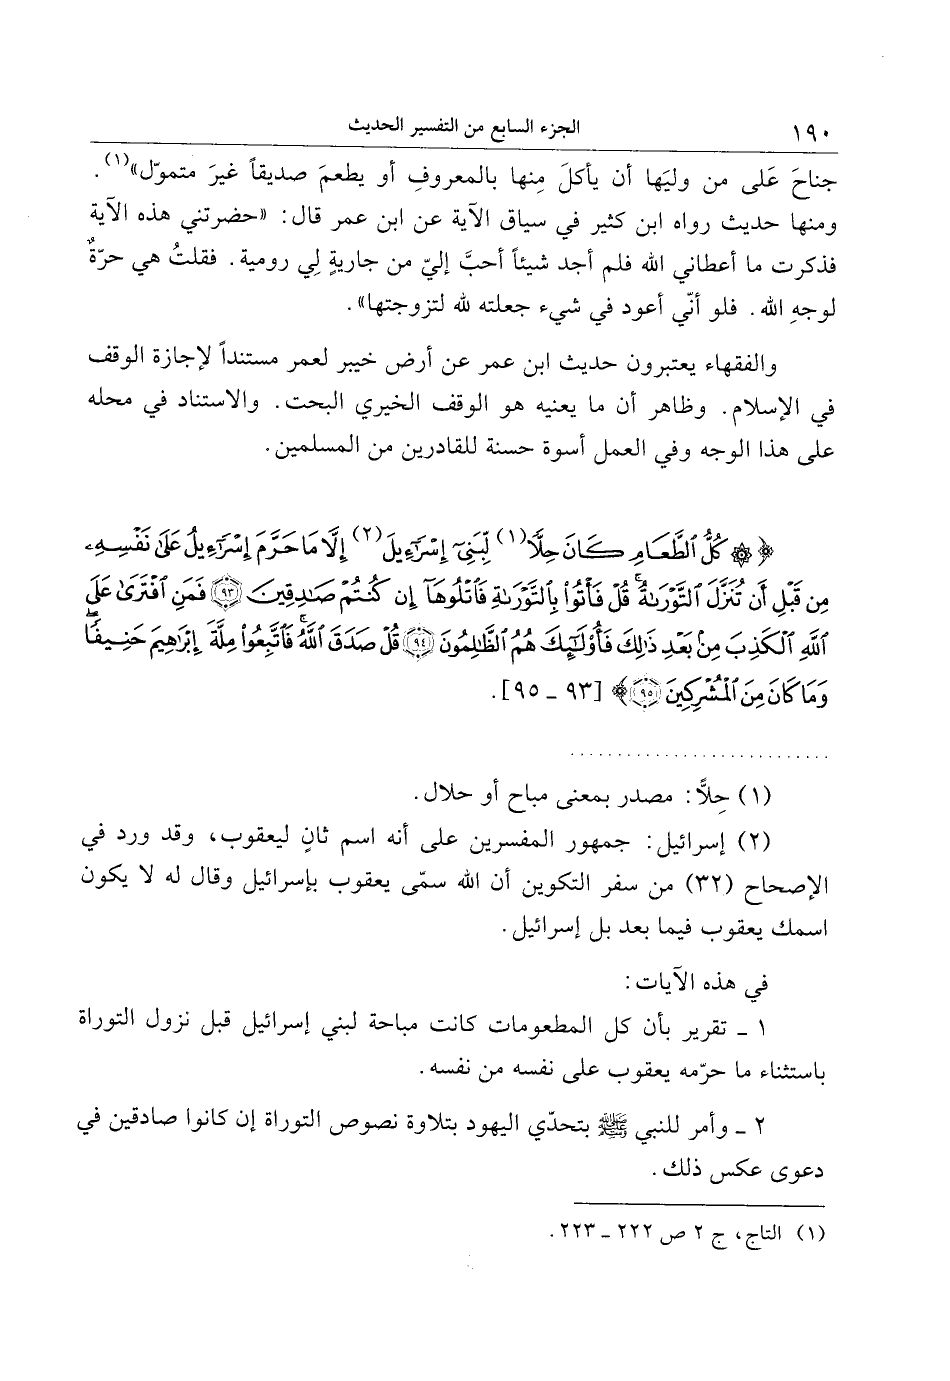 ١٩٠ الجزء السابع من التفسير الحديث
جناحَ عَلى من وليَها أن يأكلَ مِنها بالمعروفِ أو يطعمَ صديقاً غيرَ متموّل»(١).
ومنها حديث رواه ابن كثير في سياق الآية عن ابن عمر قال: «حضرتني هذه الآية
فذكرت ما أعطاني الله فلم أجد شيئاً أحبَّ إليّ من جاريةٍ لِي رومية. فقلتُ هي حرّةٌ
لوجهِ الله. فلو أنّي أعود في شيء جعلته لله لتزوجتها».
والفقهاء يعتبرون حديث ابن عمر عن أرض خيبر لعمر مستنداً لإجازة الوقف
في الإسلام. وظاهر أن ما يعنيه هو الوقف الخيري البحت. والاستناد في محله
على هذا الوجه وفي العمل أسوة حسنة للقادرين من المسلمين.
﴿ ۞ كُلُّ ٱلطَّعَامِ كَانَ حِلًّا(١) لِّبَنِىٓ إِسْرَٰٓءِيلَ(٢) إِلَّا مَا حَرَّمَ إِسْرَٰٓءِيلُ عَلَىٰ نَفْسِهِۦ
مِن قَبْلِ أَن تُنَزَّلَ ٱلتَّوْرَىٰةُ ۗ قُلْ فَأْتُوا۟ بِٱلتَّوْرَىٰةِ فَٱتْلُوهَآ إِن كُنتُمْ صَٰدِقِينَ ٩٣ فَمَنِ ٱفْتَرَىٰ عَلَى
ٱللَّهِ ٱلْكَذِبَ مِنۢ بَعْدِ ذَٰلِكَ فَأُو۟لَٰٓئِكَ هُمُ ٱلظَّٰلِمُونَ ٩٤ قُلْ صَدَقَ ٱللَّهُ ۗ فَٱتَّبِعُوا۟ مِلَّةَ إِبْرَٰهِيمَ حَنِيفًا ۖ
وَمَا كَانَ مِنَ ٱلْمُشْرِكِينَ ٩٥ ﴾ [٩٣ ـ ٩٥].
..........................
(١) حِلاًّ: مصدر بمعنى مباح أو حلال.
(٢) إسرائيل: جمهور المفسرين على أنه اسم ثانٍ ليعقوب، وقد ورد في
الإصحاح (٣٢) من سفر التكوين أن الله سمّى يعقوب بإسرائيل وقال له لا يكون
اسمك يعقوب فيما بعد بل إسرائيل.
في هذه الآيات:
١ ـ تقرير بأن كل المطعومات كانت مباحة لبني إسرائيل قبل نزول التوراة
باستثناء ما حرّمه يعقوب على نفسه من نفسه.
٢ ـ وأمر للنبي ﷺ بتحدّي اليهود بتلاوة نصوص التوراة إن كانوا صادقين في
دعوى عكس ذلك.
(١) التاج، ج ٢ ص ٢٢٢ ـ ٢٢٣.